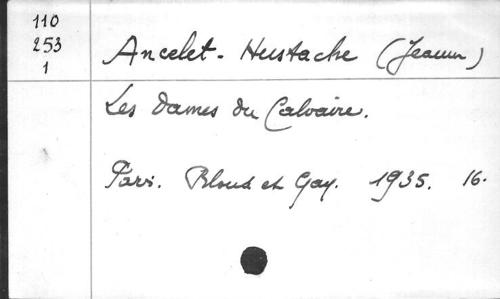 110
253
1
Ancelet-Hustache (Jeanne)
Les Dames du Calvaire.
Paris. Bloud et Gay. 1935. 16.